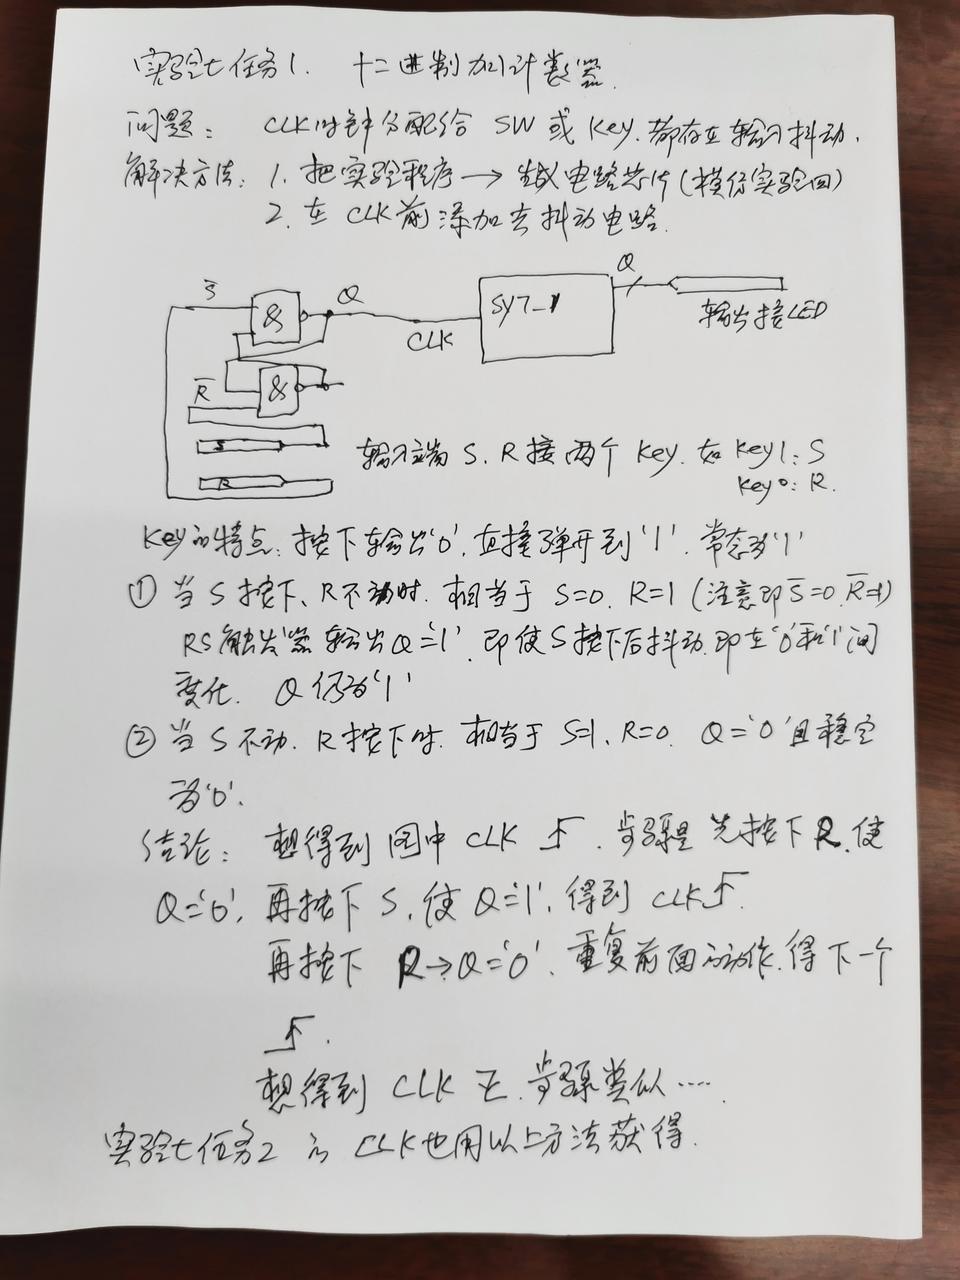 实验七任务1. 十二进制加计数器.
问题: CLK时钟分配给 SW 或 Key. 都存在输入抖动.
解决方法: 1. 把实验程序→生成电路芯片(模仿实验四)
2. 在 CLK 前添加去抖动电路.
S̅ & Q CLK SY7_1 Q
输出接LED
R̅ &
S
R
输入端 S、R接两个 Key. 如 Key1: S
Key0: R.
Key的特点: 按下输出'0', 直接弹开到'1'. 常态为'1'
① 当 S 按下、R不动时. 相当于 S=0. R=1 (注意即S̅=0. R̅=1)
RS触发器输出Q='1'. 即使S按下后抖动. 即在'0'和'1'间
变化. Q仍为'1'
② 当 S 不动. R按下时. 相当于 S=1、R=0. Q='0'且稳定
为'0'.
结论: 想得到图中 CLK . 步骤是 先按下 R. 使
Q='0', 再按下 S. 使 Q='1', 得到 CLK .
再按下 R→Q='0'. 重复前面的动作. 得下一个
.
想得到 CLK . 步骤类似....
实验七任务2 的 CLK也用以上方法获得.